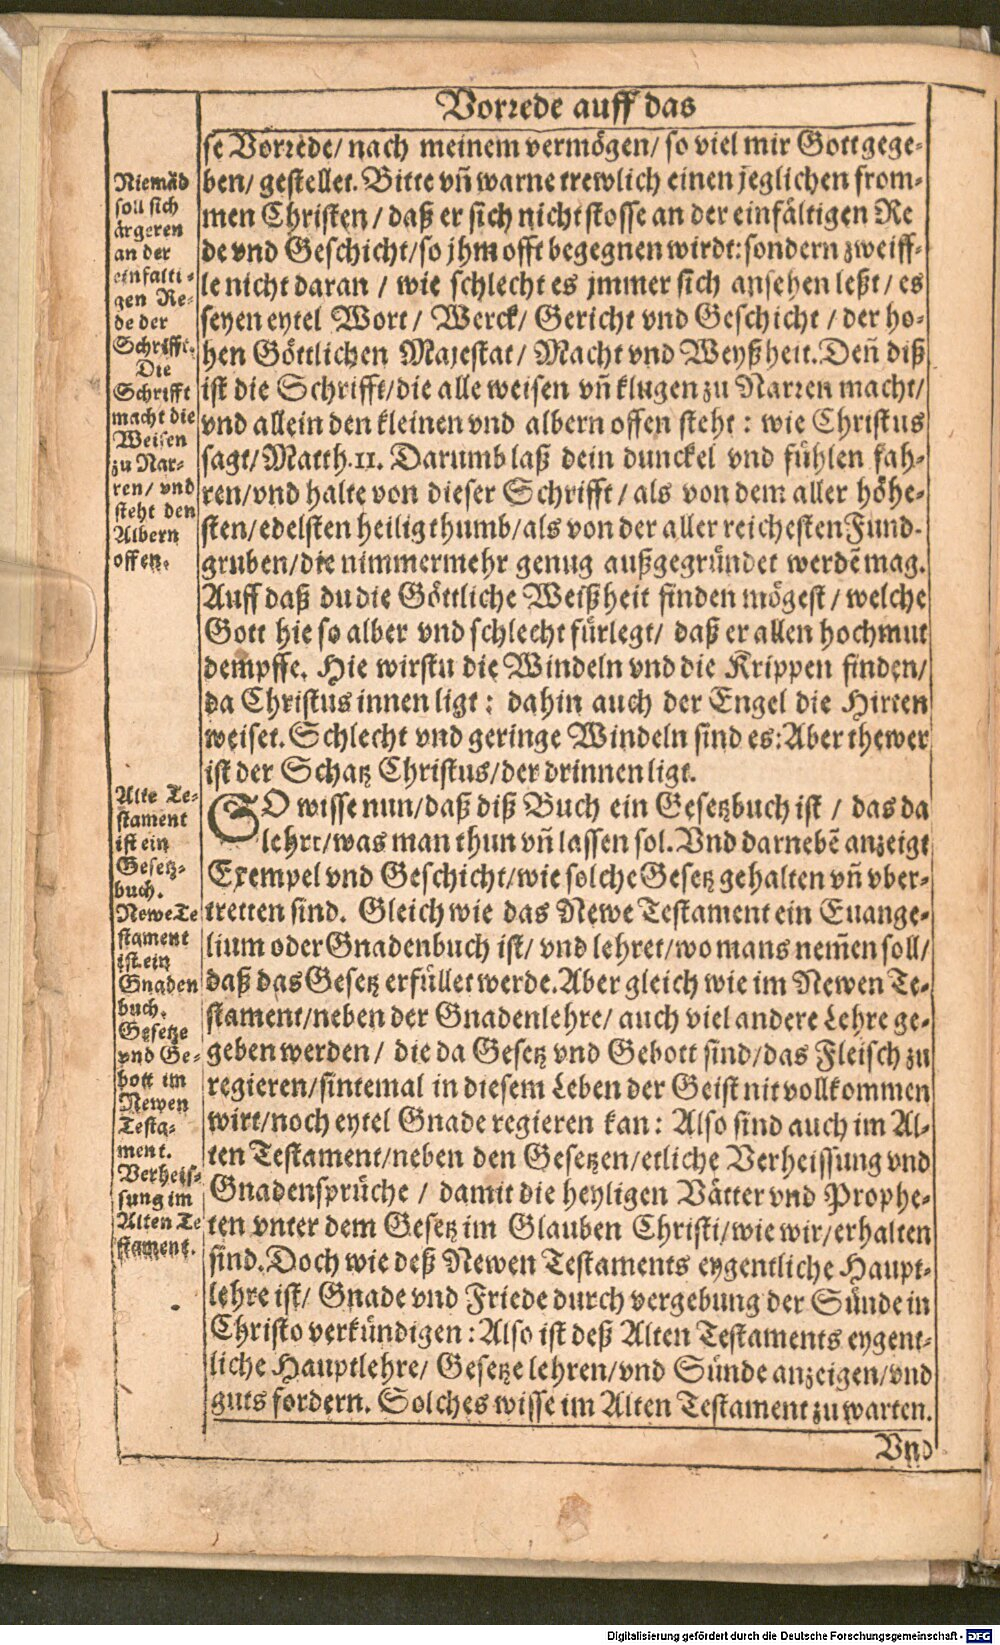 Vorrede auff das
se Vorrede/ nach meinem vermögen/ so viel mir Gott gege-
ben/ gestellet. Bitte vñ warne trewlich einen jeglichen from-
men Christen/ daß er sich nicht stosse an der einfältigen Re
de vnd Geschicht/ so jhm offt begegnen wirdt: sondern zweiff-
le nicht daran / wie schlecht es jmmer sich ansehen leßt/ es
seyen eytel Wort/ Werck/ Gericht vnd Geschicht / der ho-
hen Göttlichen Majestat/ Macht vnd Weyßheit. Deñ diß
ist die Schrifft/ die alle weisen vñ klugen zu Narren macht/
vnd allein den kleinen vnd albern offen steht : wie Christus
sagt/ Matth. 11. Darumb laß dein dunckel vnd fühlen fah-
ren/ vnd halte von dieser Schrifft/ als von dem aller höhe-
sten/ edelsten heiligthumb/ als von der aller reichesten Fund-
gruben/ die nimmermehr genug außgegründet werdẽ mag.
Auff daß du die Göttliche Weißheit finden mögest/ welche
Gott hie so alber vnd schlecht fürlegt/ daß er allen hochmut
dempffe. Hie wirstu die Windeln vnd die Krippen finden/
da Christus innen ligt : dahin auch der Engel die Hirten
weiset. Schlecht vnd geringe Windeln sind es: Aber thewer
ist der Schatz Christus/ der drinnen ligt.
SO wisse nun/ daß diß Buch ein Gesetzbuch ist / das da
lehrt/ was man thun vñ lassen sol. Vnd darnebẽ anzeigt
Exempel vnd Geschicht/ wie solche Gesetz gehalten vñ vber-
tretten sind. Gleich wie das Newe Testament ein Euange-
lium oder Gnadenbuch ist/ vnd lehret/ wo mans nem̃en soll/
daß das Gesetz erfüllet werde. Aber gleich wie im Newen Te-
stament/ neben der Gnadenlehre/ auch viel andere Lehre ge-
geben werden/ die da Gesetz vnd Gebott sind/ das Fleisch zu
regieren/ sintemal in diesem Leben der Geist nit vollkommen
wirt/ noch eytel Gnade regieren kan: Also sind auch im Al-
ten Testament/ neben den Gesetzen/ etliche Verheissung vnd
Gnadensprüche / damit die heyligen Vätter vnd Prophe-
ten vnter dem Gesetz im Glauben Christi/ wie wir/ erhalten
sind. Doch wie deß Newen Testaments eygentliche Haupt-
lehre ist/ Gnade vnd Friede durch vergebung der Sünde in
Christo verkündigen: Also ist deß Alten Testaments eygent-
liche Hauptlehre/ Gesetze lehren/ vnd Sünde anzeigen/ vnd
guts fordern. Solches wisse im Alten Testament zu warten.
Vnd
Niemãd
soll sich
ärgeren
an der
einfalti-
gen Re-
de der
Schrifft.
Die
Schrifft
macht die
Weisen
zu Nar-
ren/ vnd
steht den
Albern
offen.
Alte Te-
stament
ist ein
Gesetz-
buch.
Newe Te
stament
ist ein
Gnaden
buch.
Gesetze
vnd Ge-
bott im
Newen
Testa-
ment.
Verheis-
sung im
Alten Te
stament.
Digitalisierung gefördert durch die Deutsche Forschungsgemeinschaft - DFG